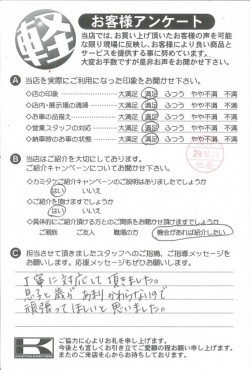 軽
お客様アンケート
当店では、お買い上げ頂いたお客様の声を可能
な限り現場に反映し、お客様により良い商品と
サービスを提供する事に努めています。
大変お手数ですが是非お声をお聞かせ下さい。
A 当店を実際にご利用になった印象をお聞かせ下さい。
◇店の印象 大満足 満足 ふつう やや不満 不満
◇店内・展示場の清掃 大満足 満足 ふつう やや不満 不満
◇お車の品揃え 大満足 満足 ふつう やや不満
◇営業スタッフの対応 大満足 満足 ふつう やや
◇納車時のお車の状態 大満足 満足 ふつう やや不満 不満
B 当店はご紹介を大切にしております。
ご紹介キャンペーンについてお聞かせ下さい。
◇カミタケご紹介キャンペーンのご説明はありましたでしょうか
はい いいえ
◇ご紹介を頂けますでしょうか
はい いいえ
◇具体的にご紹介頂ける方とのご関係をお聞かせ頂けますでしょうか
ご親族 ご友人 職場の方 機会があれば紹介したい
C 担当させて頂きましたスタッフへのご指摘、ご指導メッセージを
お願いします。応援メッセージもぜひお願いします。
丁寧に対応して頂きました。
息子と歳が あまりかわらないので
頑張ってほしいと思いました。
K
ご協力に心よりお礼を申し上げます。
今後とも宜しくお引き立てご愛顧の程お願い申し上げます。
またのご来店を心からお待ちしております。